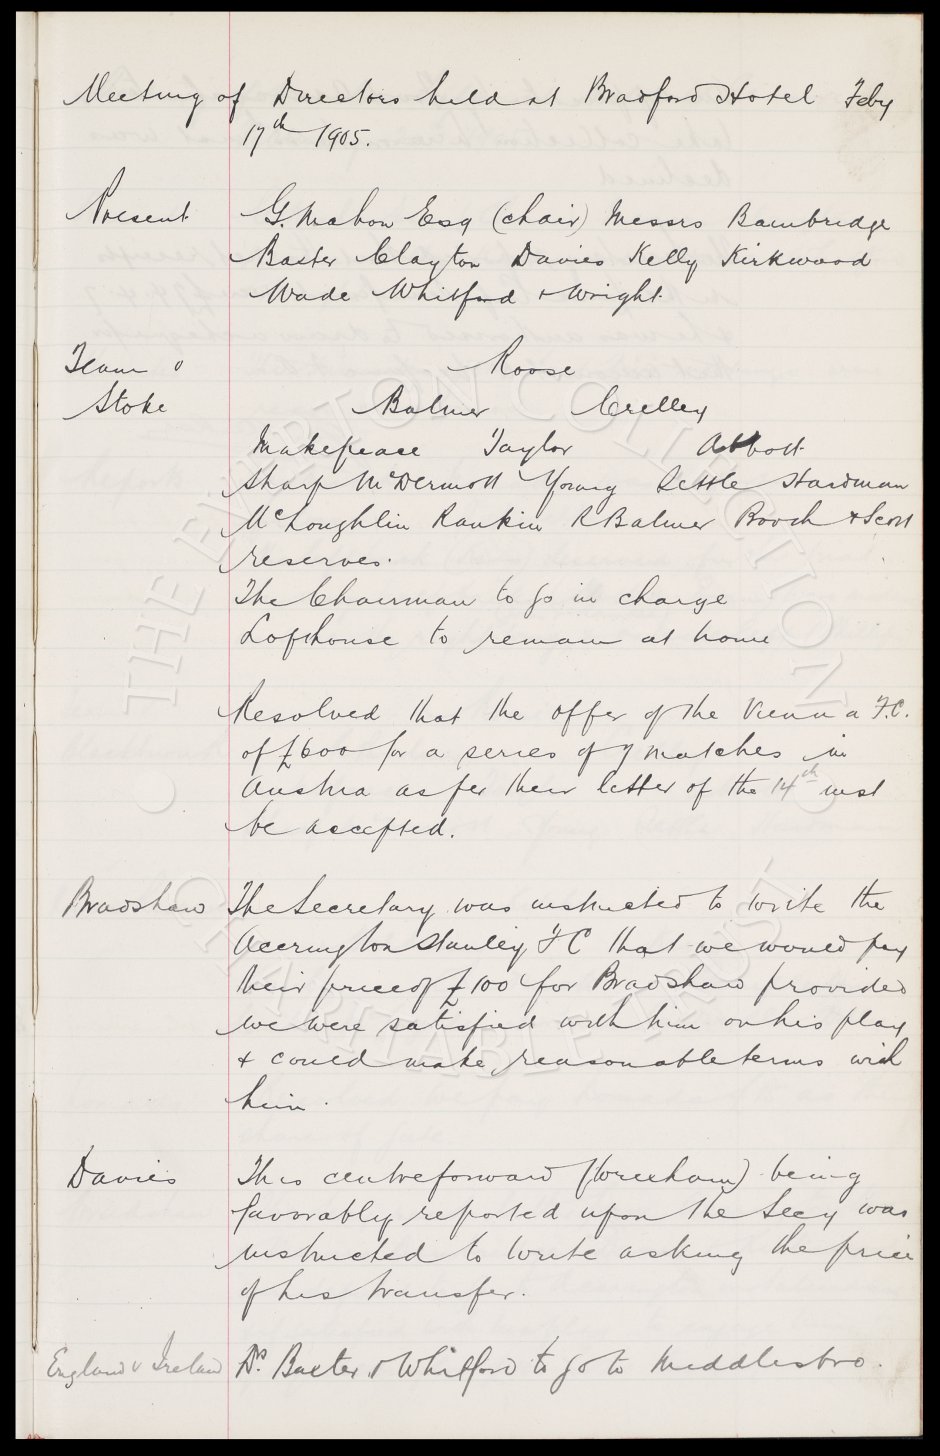 Meeting of Directors held at Bradford Hotel Feby
17th 1905.
Present G. Mahon Esq (chair) Messrs Bainbridge
Baxter Clayton Davies Kelly Kirkwood
Wade Whitford & Wright.
Team v Roose
Stoke Balmer Crelley
Makepeace Taylor Abbott
Sharp McDermott Young Settle Hardman
McLoughlin Rankin R Balmer Booth & Scott
reserves.
The Chairman to go in charge
Lofthouse to remain at home
Resolved that the offer of the Vienna F.C.
of £600 for a series of 7 matches in
Austria as per their letter of the 14th inst
be accepted.
Bradshaw The Secretary was instructed to write the
Accrington Stanley FC that we would pay
their price of £100 for Bradshaw provided
we were satisfied with him on his play
& could make reasonable terms with
him.
Davies This centreforward (Wrexham) being
favorably reported upon the Secy was
instructed to write asking the price
of his transfer.
England v Ireland Drs. Baxter & Whitford to go to Middlesbro.
THE EVERTON COLLECTION
CHARITABLE TRUST